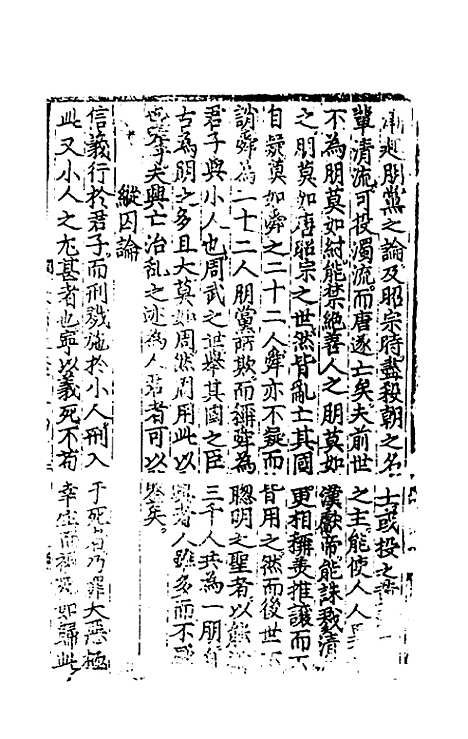 漸起朋黨之論及昭宗時盡殺朝之名士或投之黃
輩清流可投濁流而唐遂亡矣夫前世之主能使人人
不為朋莫如紂能禁絕善人之朋莫如漢獻帝能誅戮清
之朋莫如唐昭宗之世然皆亂亡其國更相稱美推讓而不
自疑莫如舜之二十二人舜亦不疑而皆用之然而後世
誚舜為二十二人朋黨所欺而稱舜為聰明之聖者以能
君子與小人也周武之世舉其國之臣三千人共為一朋自
古為朋之多且大莫如周然周用此以興者人雖多而不
也嗟夫興亡治亂之迹為人君者可以鑒矣
縱囚論
信義行於君子而刑戮施於小人刑入于死者乃罪大惡極
此又小人之尤甚者也寧以義死不苟幸生而視死如歸此